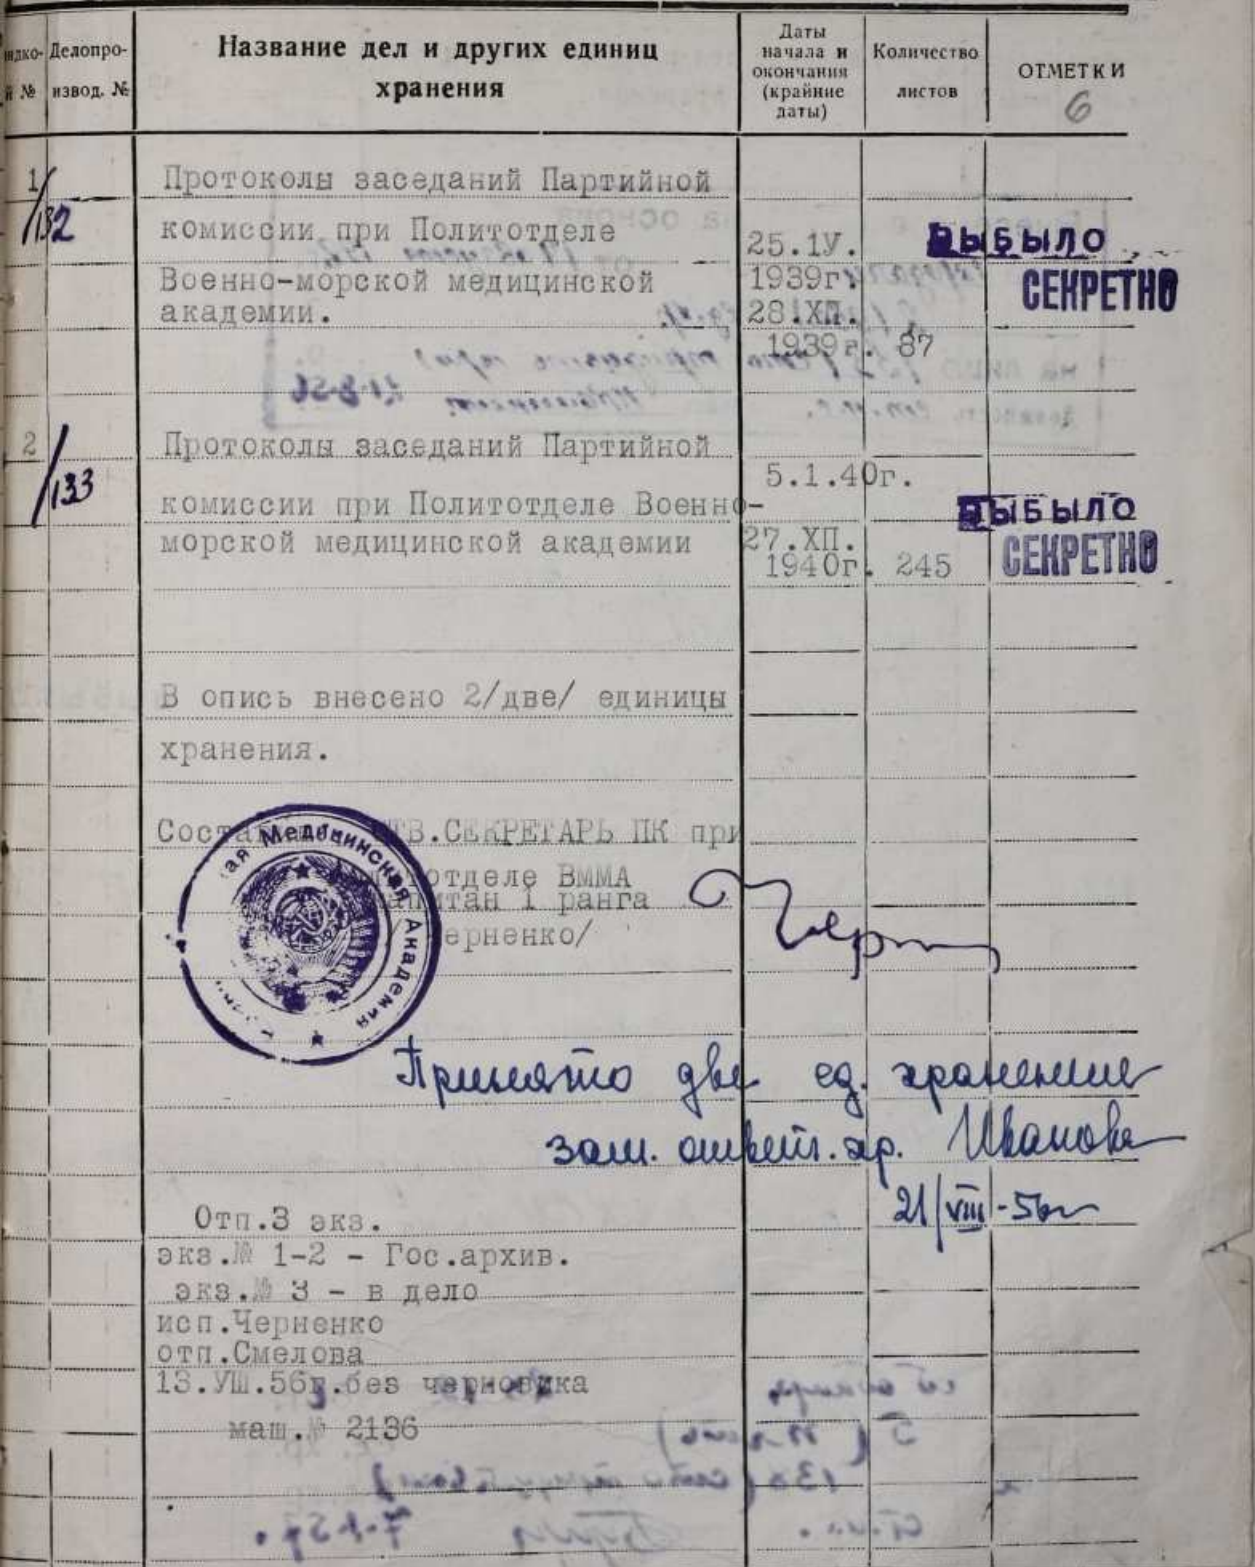 Делопро-
извод. №
Название дел и других единиц
хранения
Даты
начала и
окончания
(крайние
даты)
Количество
листов
ОТМЕТКИ
6
1/132
Протоколы заседаний Партийной
комиссии при Политотделе
Военно-морской медицинской
академии.
25.1У.
1939г.
28.ХП.
1939г. 87
ВЫБЫЛО
СЕКРЕТНО
2/133
Протоколы заседаний Партийной
комиссии при Политотделе Военно-
морской медицинской академии
5.1.40г.
27.ХП.
1940г. 245
ВЫБЫЛО
СЕКРЕТНО
В опись внесено 2/две/ единицы
хранения.
СЕКРЕТАРЬ ПК при
отделе ВММА
капитан 1 ранга
/Черненко/
Медицинская Академия
Принято две ед. хранение
зам. ответ. хр. Иванова
21/VIII-56г
Отп.3 экз.
экз.№ 1-2 - Гос.архив.
экз.№ 3 - в дело
исп.Черненко
отп.Смелова
13.УШ.56г.без черновика
маш.№ 2136